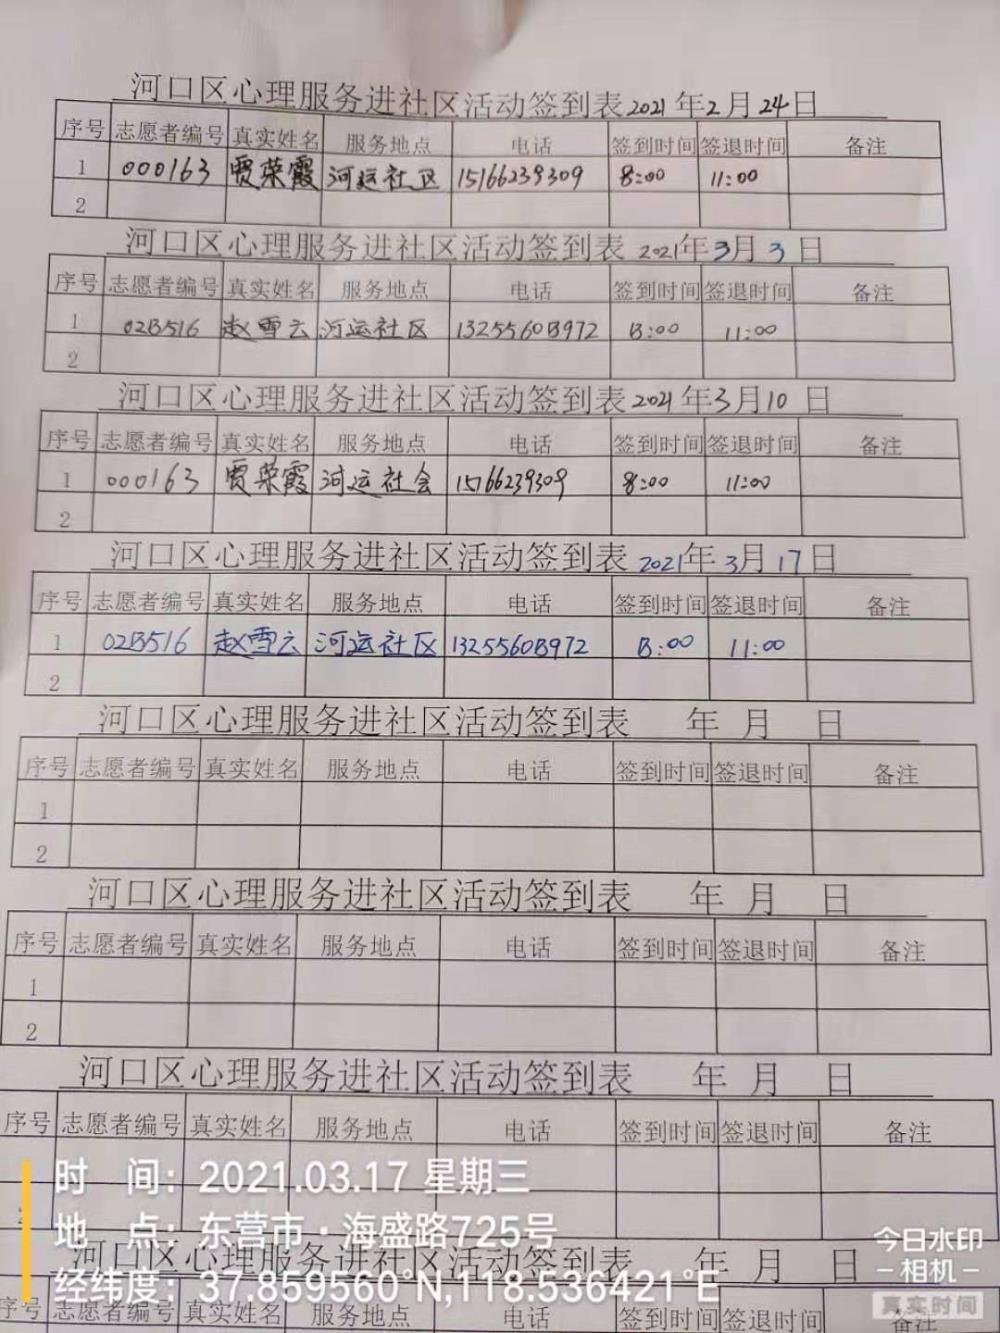 河口区心理服务进社区活动签到表2021年2月24日
序号 志愿者编号 真实姓名 服务地点 电话 签到时间 签退时间 备注
1 000163 贾荣霞 河运社区 15166239309 8:00 11:00
2
河口区心理服务进社区活动签到表 2021年3月3日
序号 志愿者编号 真实姓名 服务地点 电话 签到时间 签退时间 备注
1 02B516 赵雪云 河运社区 1325560B972 B:00 11:00
2
河口区心理服务进社区活动签到表2021年3月10日
序号 志愿者编号 真实姓名 服务地点 电话 签到时间 签退时间 备注
1 000163 贾荣霞 河运社会 15166239309 8:00 11:00
2
河口区心理服务进社区活动签到表 2021年3月17日
序号 志愿者编号 真实姓名 服务地点 电话 签到时间 签退时间 备注
1 02B516 赵雪云 河运社区 1325560B972 B:00 11:00
2
河口区心理服务进社区活动签到表 年 月 日
序号 志愿者编号 真实姓名 服务地点 电话 签到时间 签退时间 备注
1
2
河口区心理服务进社区活动签到表 年 月 日
序号 志愿者编号 真实姓名 服务地点 电话 签到时间 签退时间 备注
1
2
河口区心理服务进社区活动签到表 年 月 日
序号 志愿者编号 真实姓名 服务地点 电话 签到时间 签退时间 备注
时 间：2021.03.17 星期三
地 点：东营市·海盛路725号
河口区心理服务进社区活动签到表 年 月 日
经纬度：37.859560°N,118.536421°E
今日水印
-相机-
真实时间
序号 志愿者编号 真实姓名 服务地点 电话 签到时间 签退时间 备注